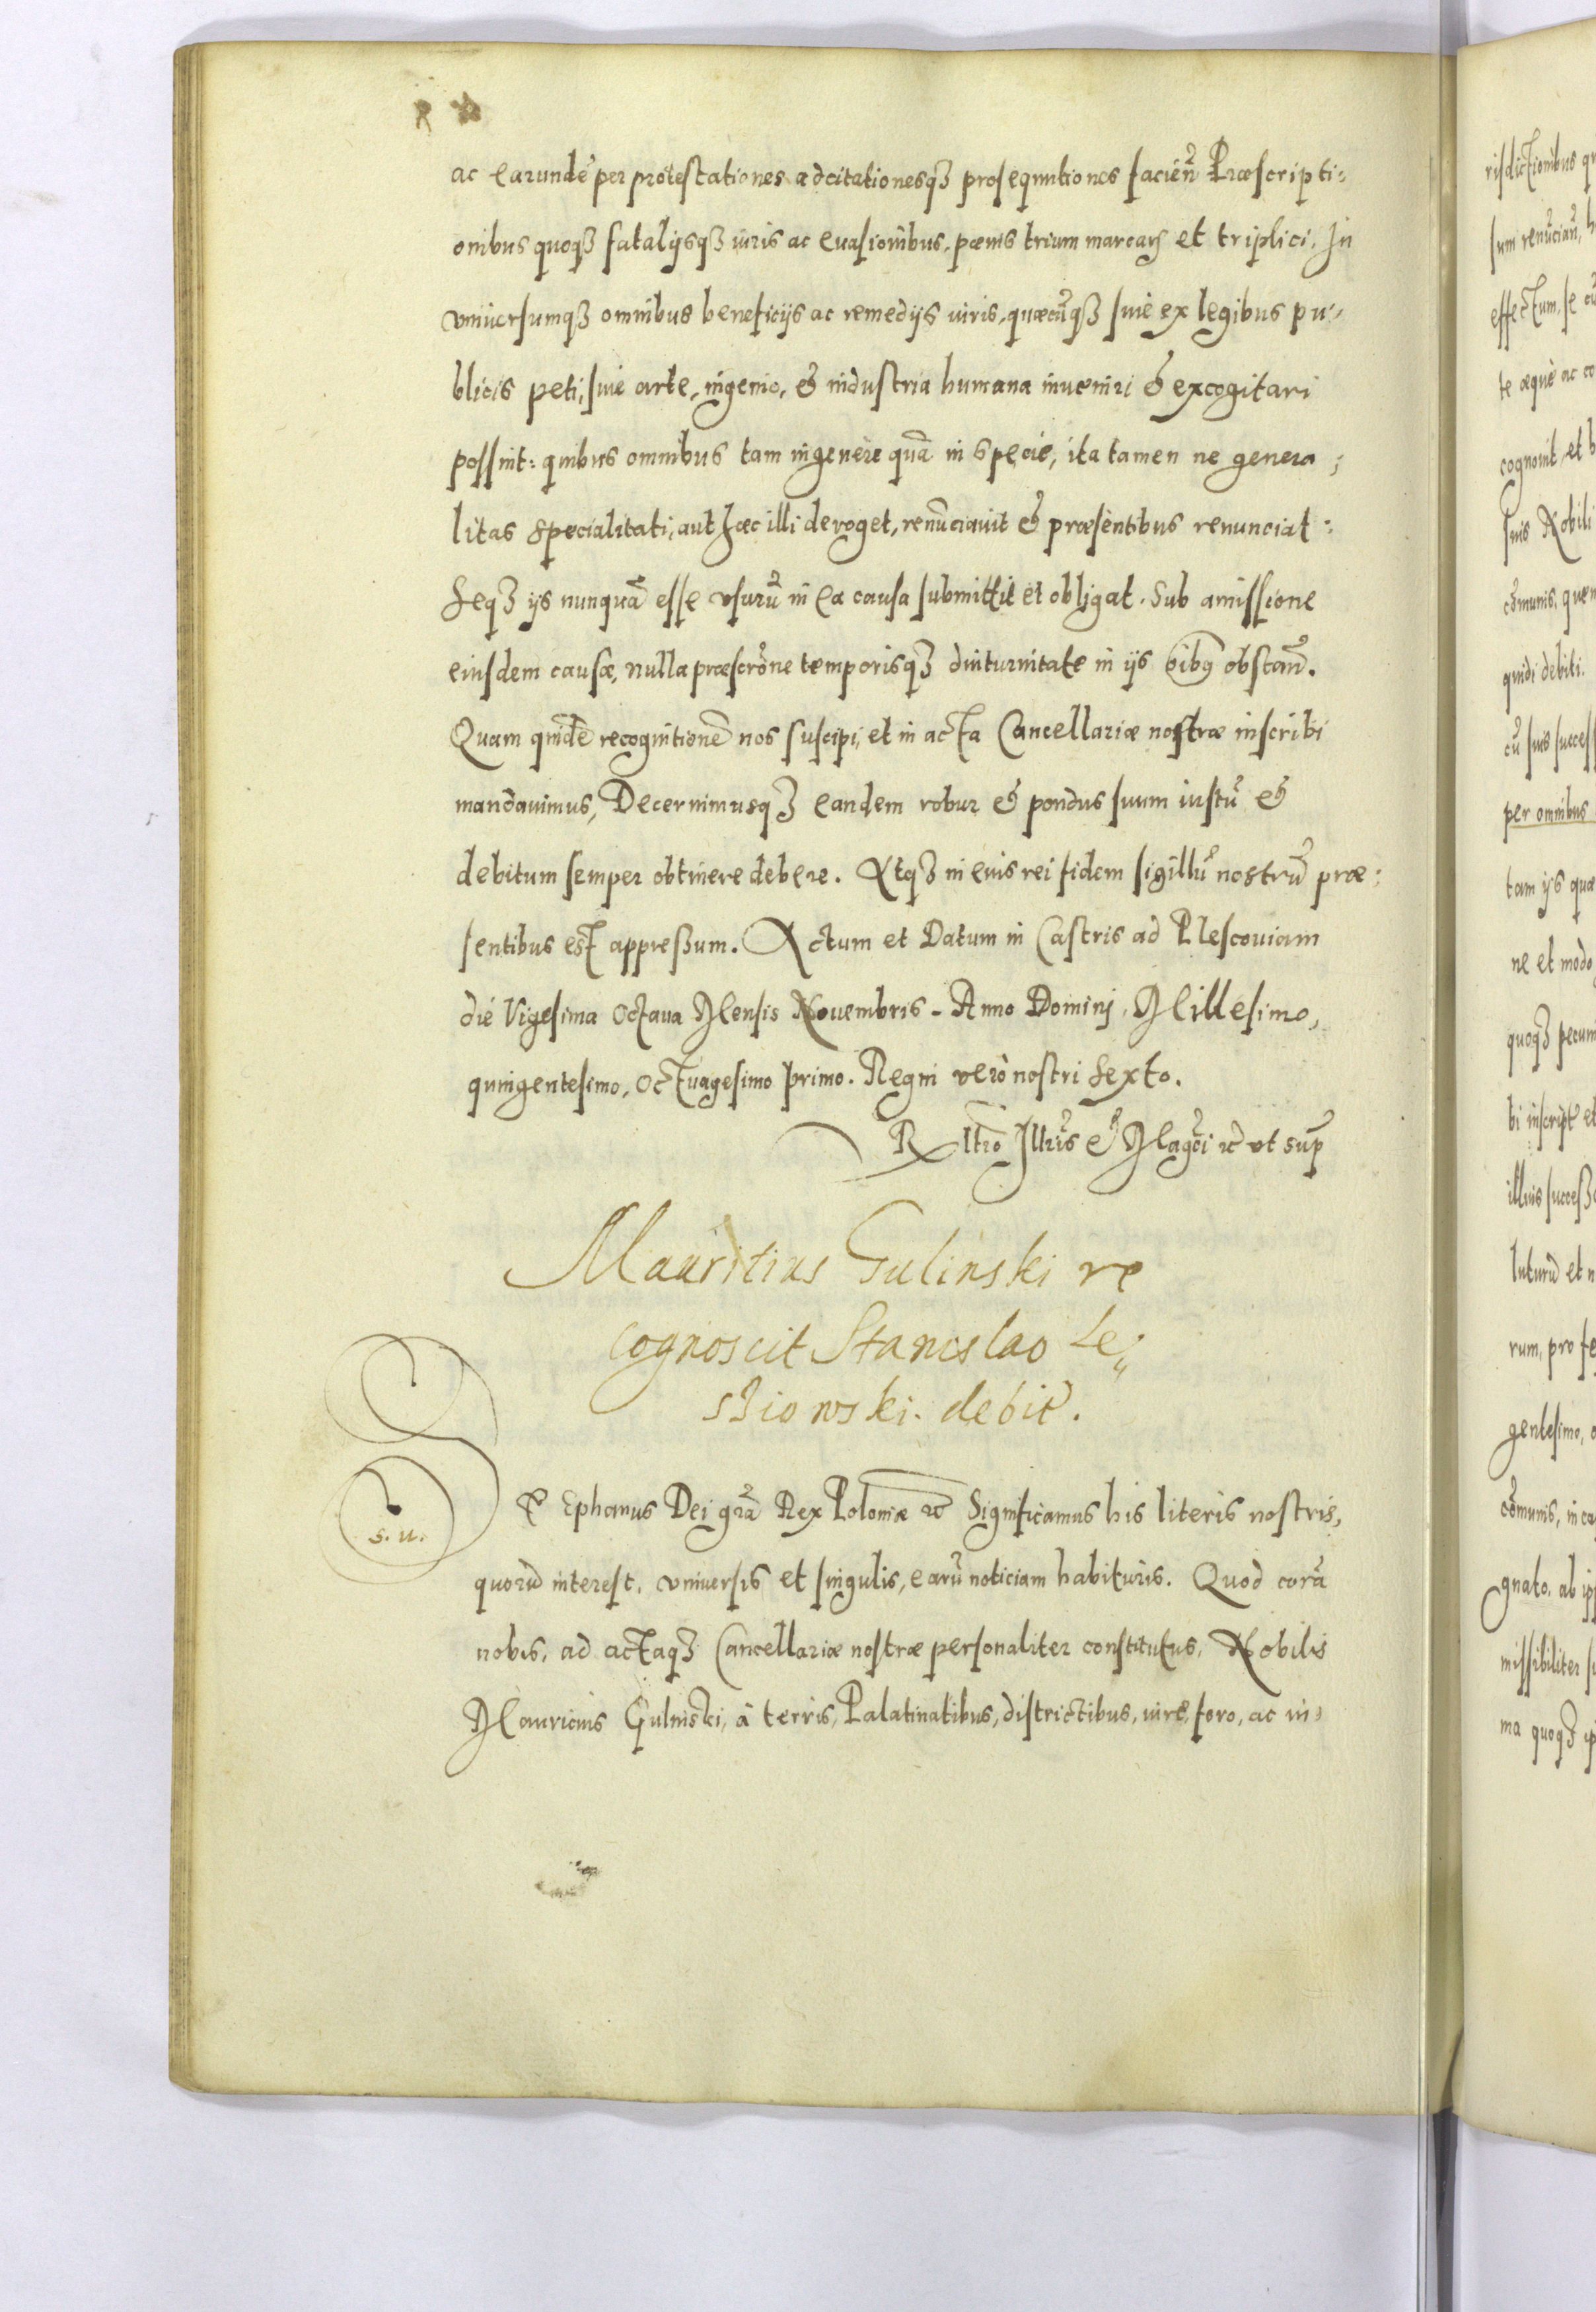 ac earundē per protestationes adcitationesqꝫ prosequutiones facieñ Præscripti:
onibus quoqꝫ fatalijsqꝫ iuris ac euasionibus, pœnis trium marcarꝭ et triplici. In
vniuersumqꝫ omnibus beneficijs ac remedijs iuris, quæcūqꝫ siue ex legibus pu:
blicis peti, siue arte, ingenio, & industria humana inueniri & excogitari
possint: quibus omnibus tam ingenere quā in specie, ita tamen ne genera:
litas specialitati, aut hæc illi deroget, renūciauit & præsentibus renunciat:
Seqꝫ ijs nunquā esse vsurū in ea causa submittit et obligat. Sub amissione
eiusdem causæ, nulla præscrōne temporisqꝫ diuturnitate in ijs oībꝰ obstañ.
Quam quidē recognitionē nos suscipi, et in acta Cancellariæ nostræ inscribi
mandauimus, Decernimusqꝫ eandem robur & pondus suum iustū &
debitum semper obtinere debere. Atqꝫ in eius rei fidem sigillū nostrū præ:
sentibus est appreßum. Actum et Datum in Castris ad Plescouiam
die Vigesima Octaua Mensis Nouembris. Anno Domini, Millesimo,
quingentesimo, Octuagesimo primo. Regni verò nostri Sexto.
Rltio Illris & Magci &c vt sup
Mauritius Gulinski re
cognoscit Stanislao Le:
sziowski. debit.
S. u.
Stephanus Dei grā Rex Poloniæ &c Significamus his literis nostris,
quorū interest, vniuersis et singulis, earū noticiam habituris. Quod corā
nobis, ad actaqꝫ Cancellariæ nostræ personaliter constitutus, Nobilis
Mauricius Gulinski, à terris, Palatinatibus, districtibus, iure, foro, ac iu:
risdictionibus
sum renūciañ,
effectum, se
te æquè ac co
cognouit et
suis Nobili
cōmunis,
quidi debiti.
cū suis success
per omnibus
tam ijs quæ
ne et modo
quoqꝫ pecun
bi inscript et
illius succeß
luturū et n
rum, pro fe
gentesimo,
cōmunis, in ca
gnato, ab ip
missibiliter
ma quoqꝫ ip